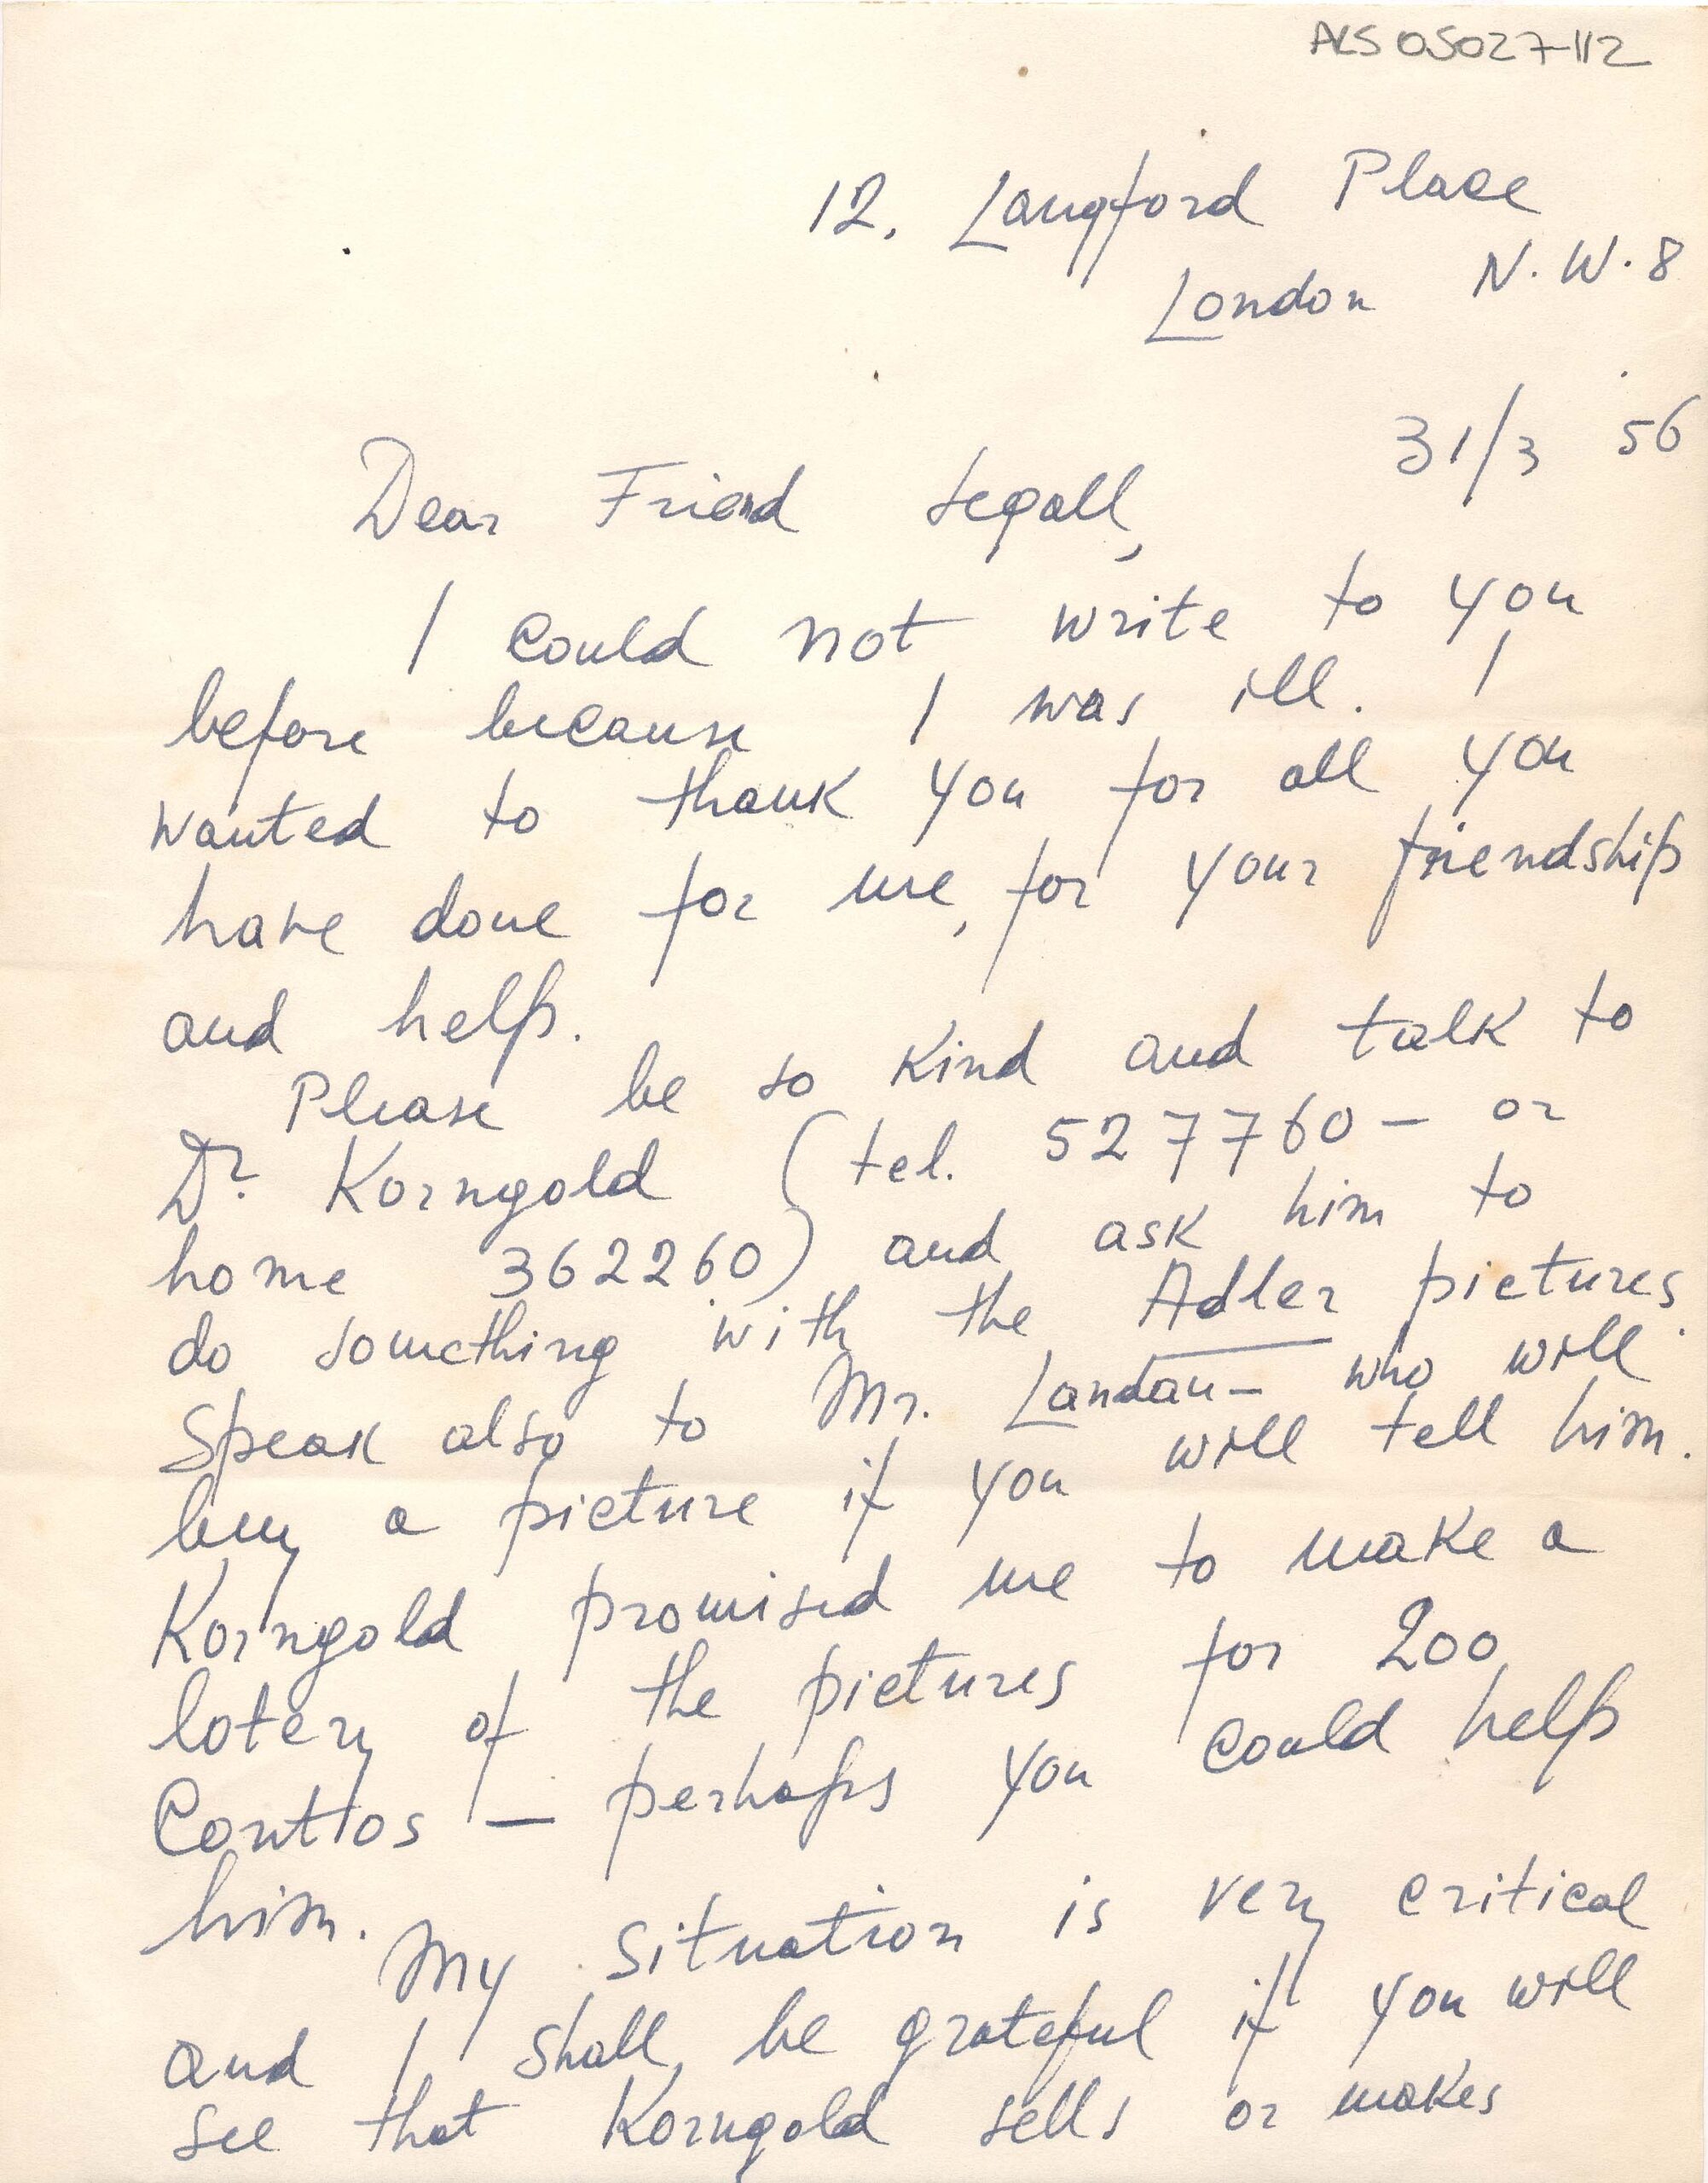 ALS 05027-112
12. Langford Place
London N.W.8
31/3 56
Dear Friend Segall,
I could not write to you
before because I was ill. I
wanted to thank you for all you
have done for me, for your friendship
and help.
Please be so kind and talk to
Dr. Korngold (tel. 527760 – or
home 362260) and ask him to
do something with the Adler pictures.
Speak also to Mr. Landau – who will
buy a picture if you will tell him.
Korngold promised me to make a
lotery of the pictures for 200
Contos – perhaps you could help
him.
My situation is very critical
and I shall be grateful if you will
see that Korngold sells or makes